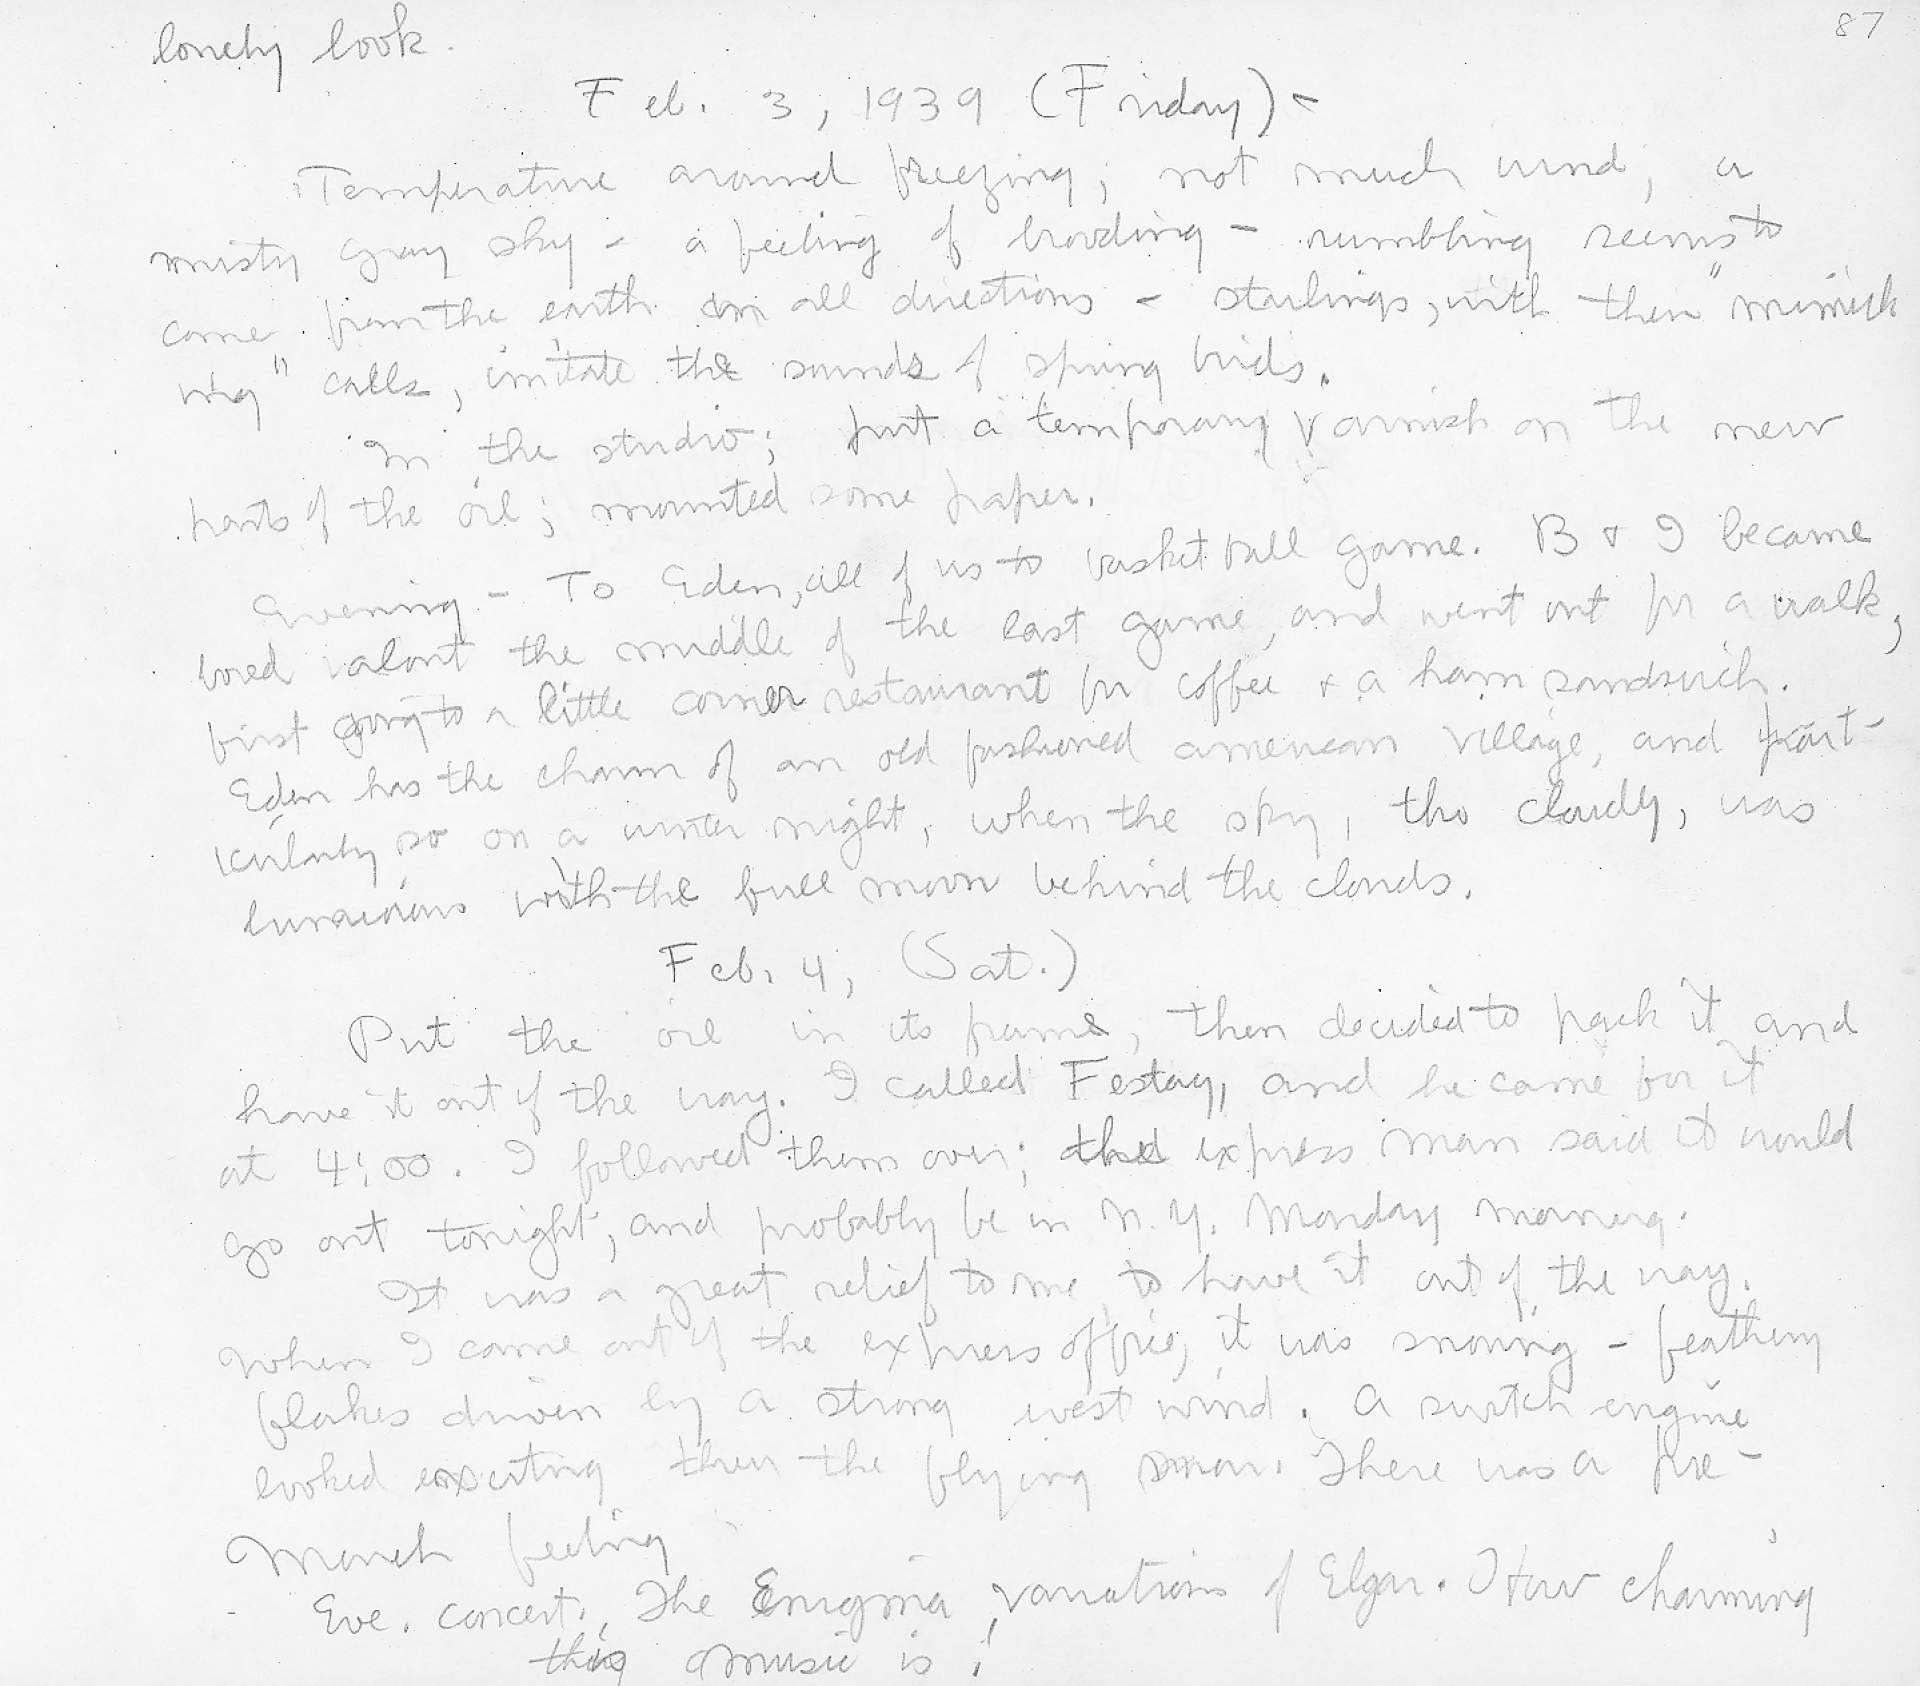 87
lonely look.
Feb. 3, 1939 (Friday) -
Temperature around freezing; not much wind; a
misty gray sky - a feeling of brooding - rumbling seems to
come from the earth in all directions - starlings, with their "mimick
ing" calls, imitate the sounds of spring birds.
In the studio; put a temporary varnish on the new
parts of the oil; mounted some paper.
Evening - To Eden, all of us to basket ball game. B + I became
bored about the middle of the last game, and went out for a walk,
first going to a little corner restaurant for coffee + a ham sandwich.
Eden has the charm of an old fashioned american village, and part-
icularly so on a winter night, when the sky, tho cloudy, was
luminous with the full moon behind the clouds.
Feb. 4, (Sat.)
Put the oil in its frame, then decided to pack it and
have it out of the way. I called Festay, and he came for it
at 4:00. I followed them over; the express man said it would
go out tonight, and probably be in N.Y. Monday morning.
It was a great relief to me to have it out of the way.
When I came out of the express office, it was snowing - feathery
flakes driven by a strong west wind. A switch engine
looked exciting thru the flying snow. There was a pre-
March feeling
Eve. concert, The Enigma Variations of Elgar. How charming
this music is!